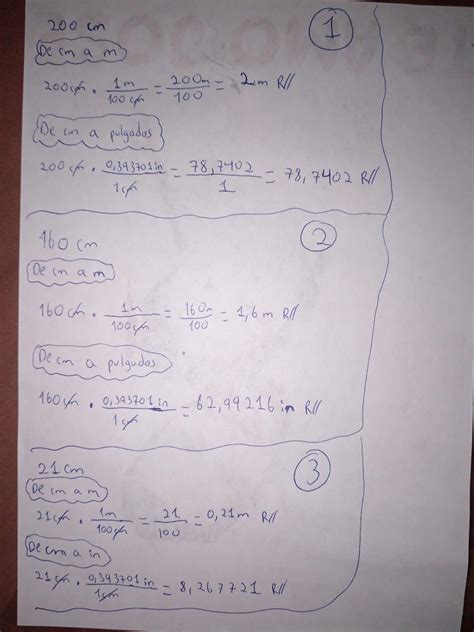 200 cm
1
De cm a m
200 cm · 1m / 100 cm = 200m / 100 = 2m R//
De cm a pulgadas
200 cm · 0,393701 in / 1 cm = 78,7402 / 1 = 78,7402 R//
160 cm
2
De cm a m
160 cm · 1m / 100 cm = 160m / 100 = 1,6 m R//
De cm a pulgadas
160 cm · 0,393701 in / 1 cm = 62,99216 in R//
21 cm
3
De cm a m
21 cm · 1m / 100 cm = 21 / 100 = 0,21m R//
De cm a in
21 cm · 0,393701 in / 1 cm = 8,267721 R//